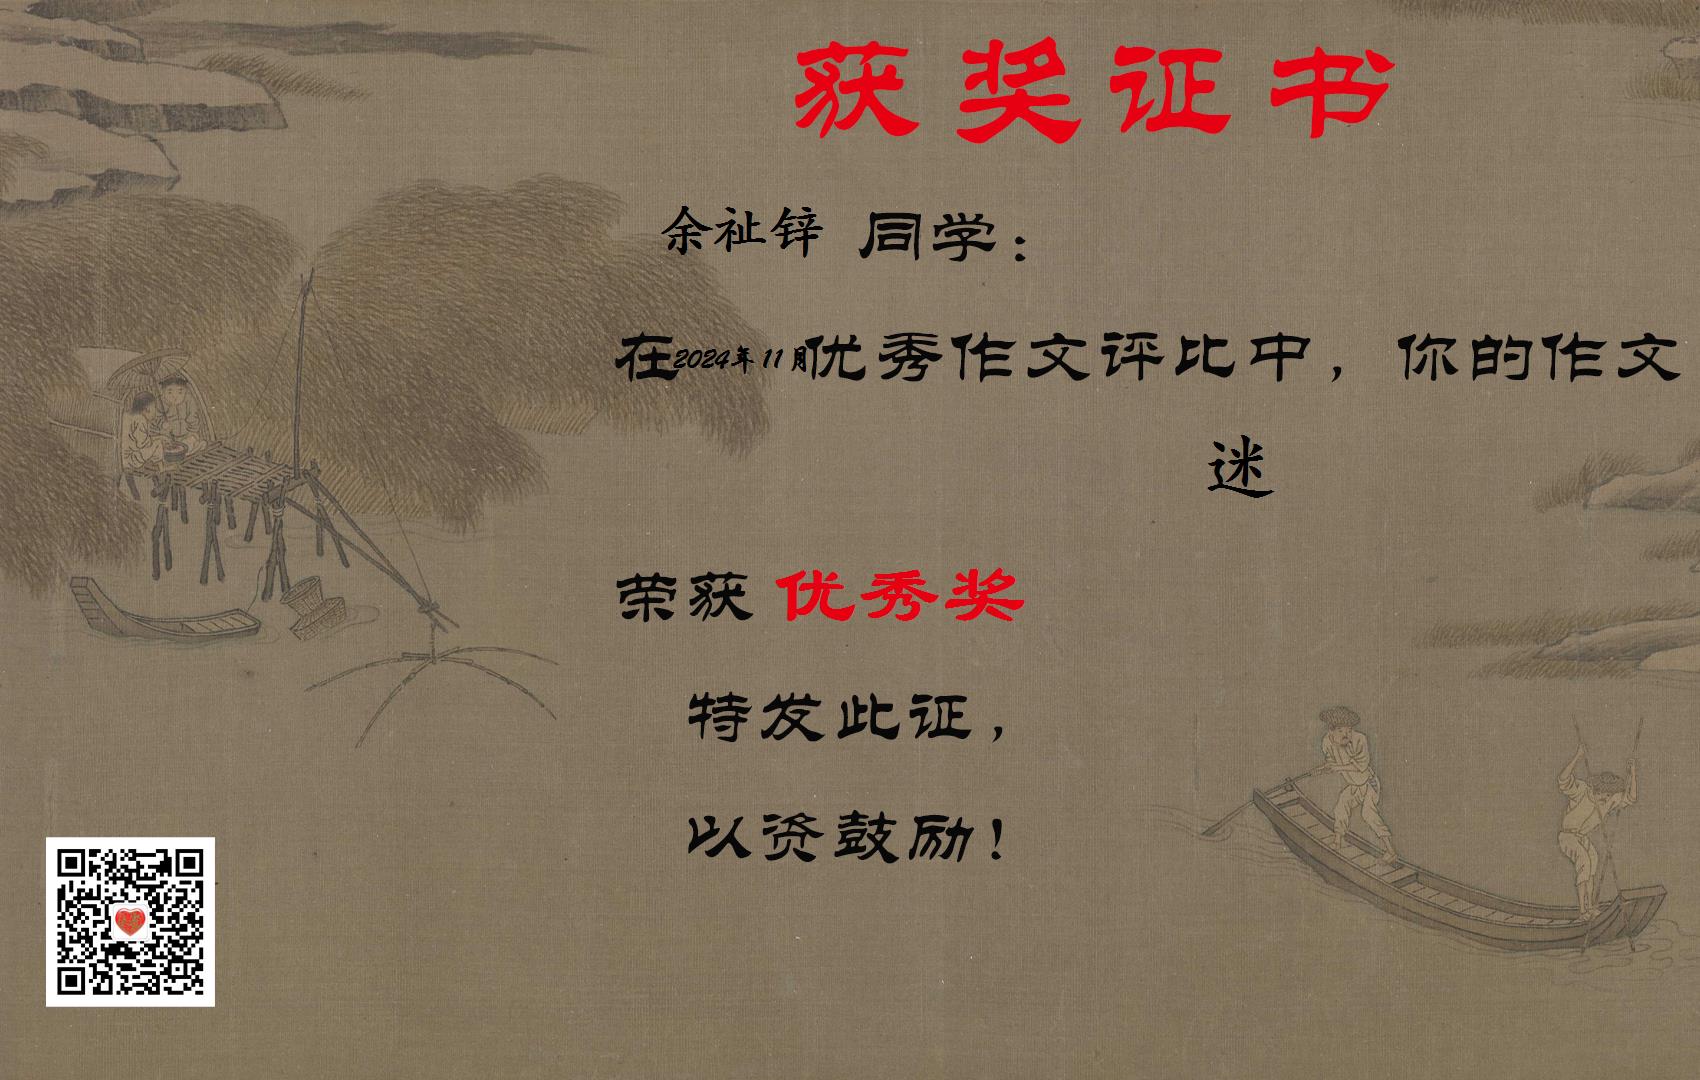 获奖证书
余祉锌 同学：
在2024年11月优秀作文评比中，你的作文
迷
荣获 优秀奖
特发此证，
以资鼓励！